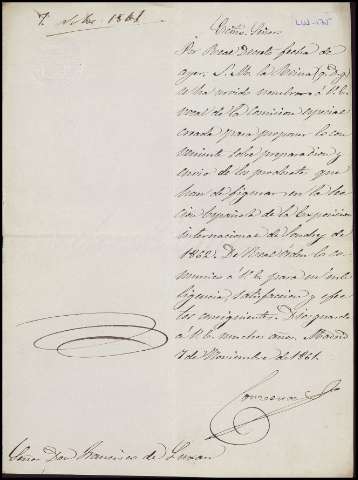 7. Nbre. 1861.
Excmo. Señor
Por Real Decreto fecha de
ayer, S. M. la Reina (q. D. g.)
se ha servido nombrar á V. E.
vocal de la Comision especial
creada para proponer lo con-
veniente sobre preparacion y
envio de los productos que
han de figurar en la Sec-
cion Española de la Exposicion
internacional de Londres de
1862. De Real órden lo co-
munico á V. E. para su inte-
ligencia, satisfaccion y efec-
tos consiguientes. Dios guarde
á V. E. muchos años. Madrid
7 de Noviembre de 1861.
Señor Don Francisco de Luxan